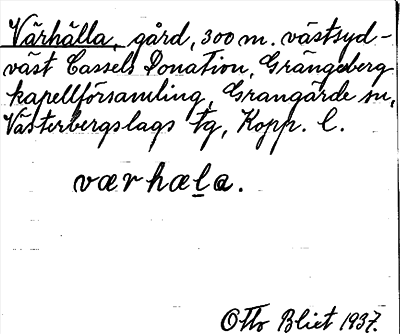 Värhälla, gård, 300 m. västsyd-
väst Cassels Donation, Grängesberg
kapellförsamling, Grangärde sn,
Västerbergslags tg, Kopp. l.
værhæḻa.
Otto Blixt 1937.